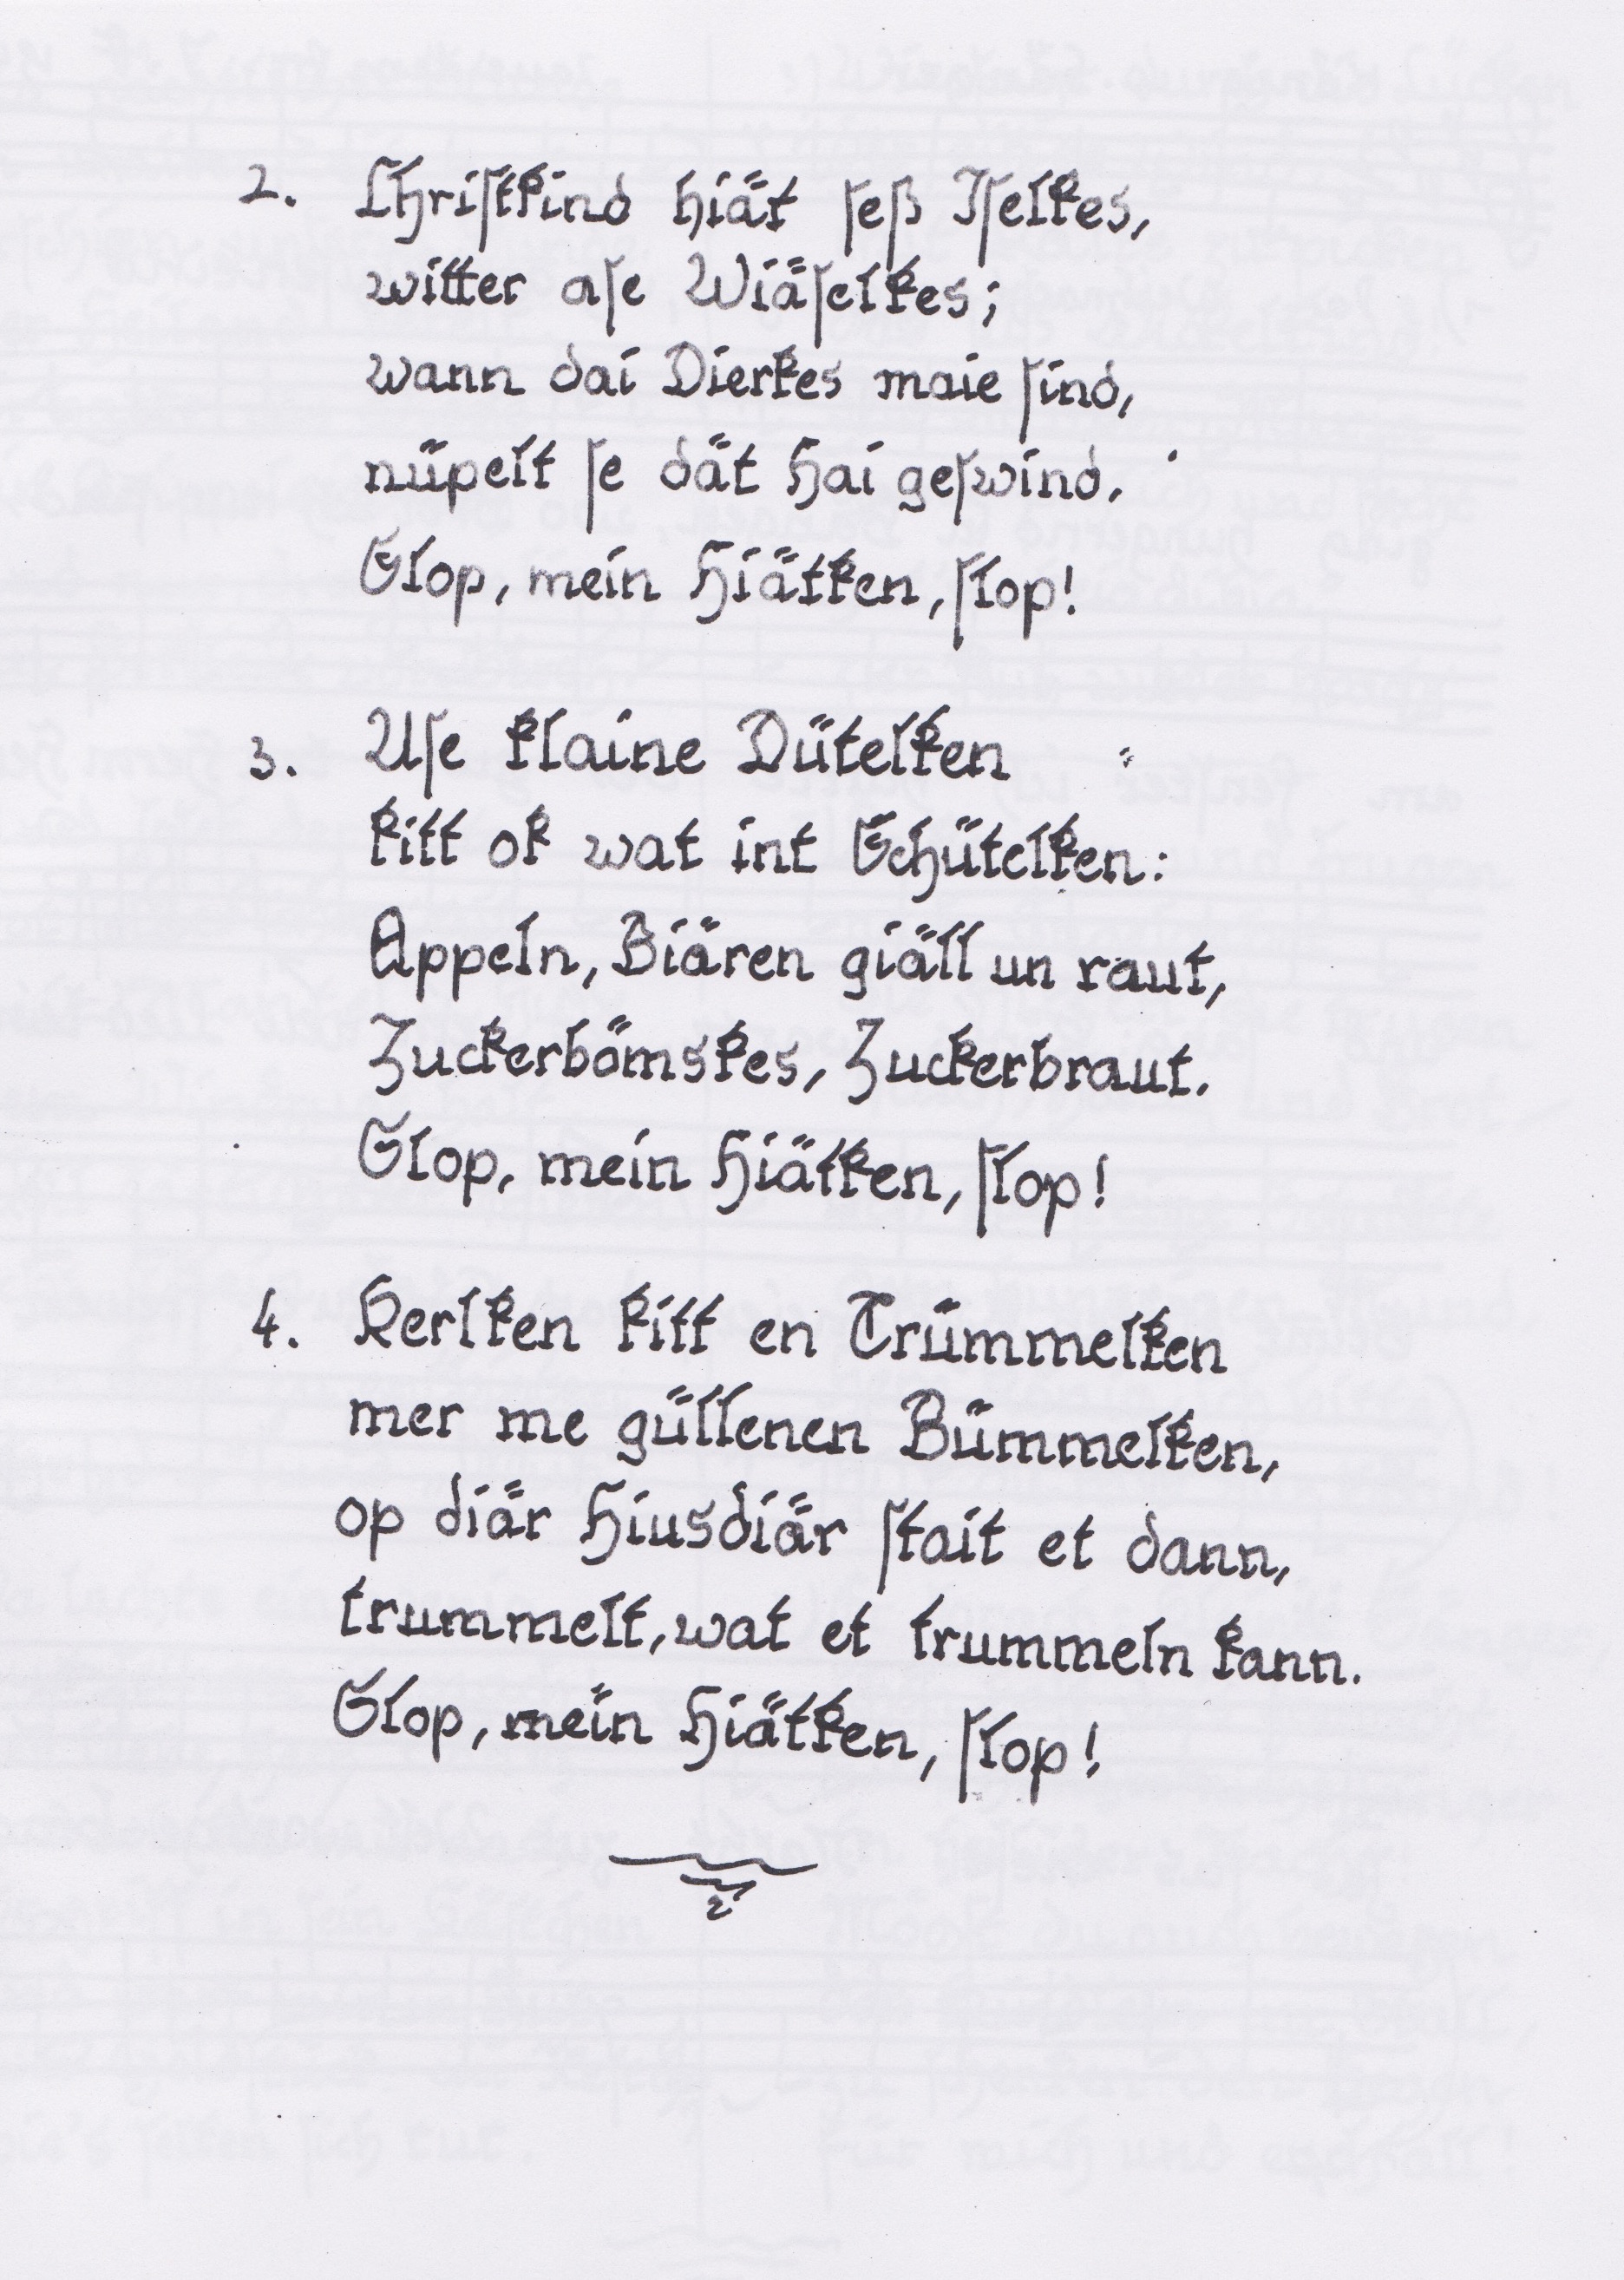 2. Chriſtkind hiät ſeß Iſelkes,
witter aſe Wiäſelkes;
wann dai Dierkes maie ſind,
nüpelt ſe dät Hai geſwind.
Slop, mein Hiätken, ſlop!
3. Uſe klaine Dütelken
kitt ok wat int Schütelken:
Appeln, Biären giäll un raut,
Zuckerbömskes, Zuckerbraut.
Slop, mein Hiätken, ſlop!
4. Kerlken kitt en Trümmelken
mer me güllenen Bümmelken,
op diär Hiusdiär ſtait et dann,
trummelt, wat et trummeln kann.
Slop, mein Hiätken, ſlop!